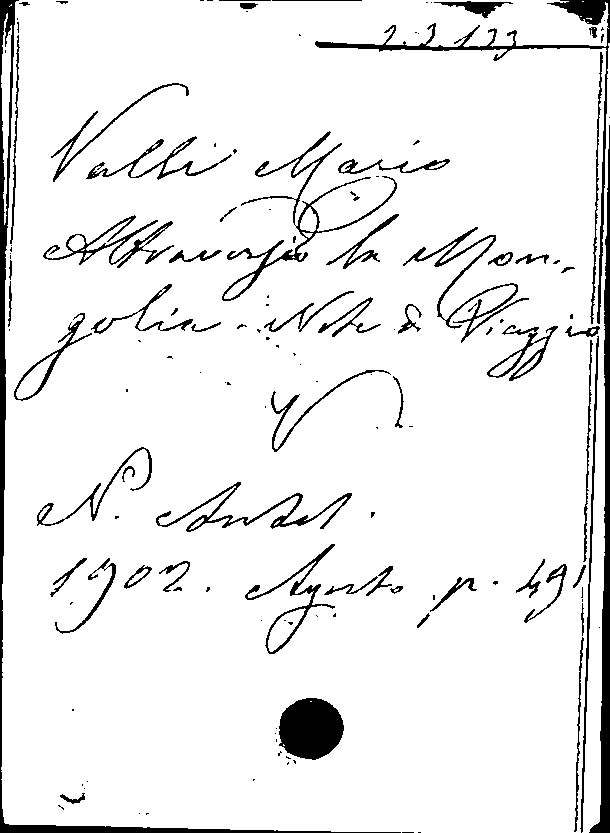 2.3.133
Valli Mario
Attraverso la Mon-
golia. Note di Viaggio
N. Antol.
1902. Agosto p. 491